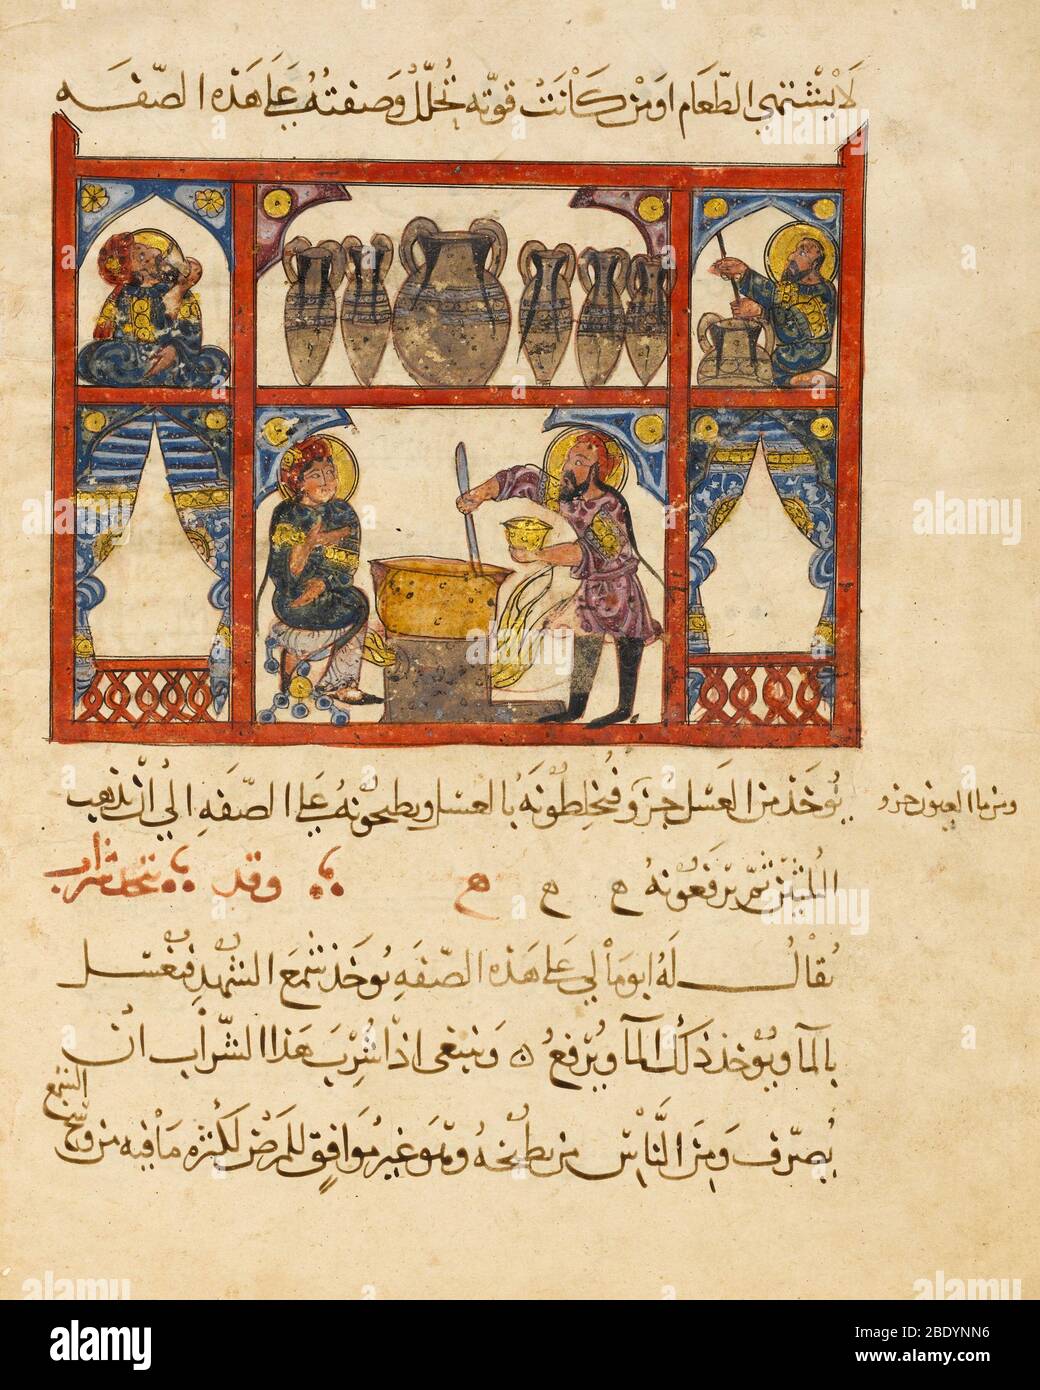 لا يشتهي الطعام او من كانت قوته تحلل وصفته على هذه الصفه
يوخذ من العسل جزو فيخلطونه بالعسل ويطبخونه على الصفه الي ان يذهب
ومن ما العيون جزو
الثلثين ثم يرفعونه ه ه ه وقد يتخذ شراب
يقال له ابومالي على هذه الصفه يوخذ شمع الشهد فيغسل
بالما ويوخذ ذلك الما ويرفع وينبغي اذا شرب هذا الشراب ان
يصرف ومن الناس من يطبخه وهو غير موافق للمرضى لكثره ما فيه من وسخ
الشمع
alamy
Image ID: 2BDYNN6
www.alamy.com